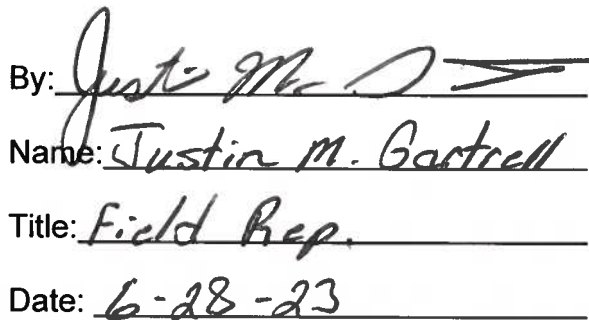 By: Justin
Name: Justin M. Gartrell
Title: Field Rep.
Date: 6-28-23